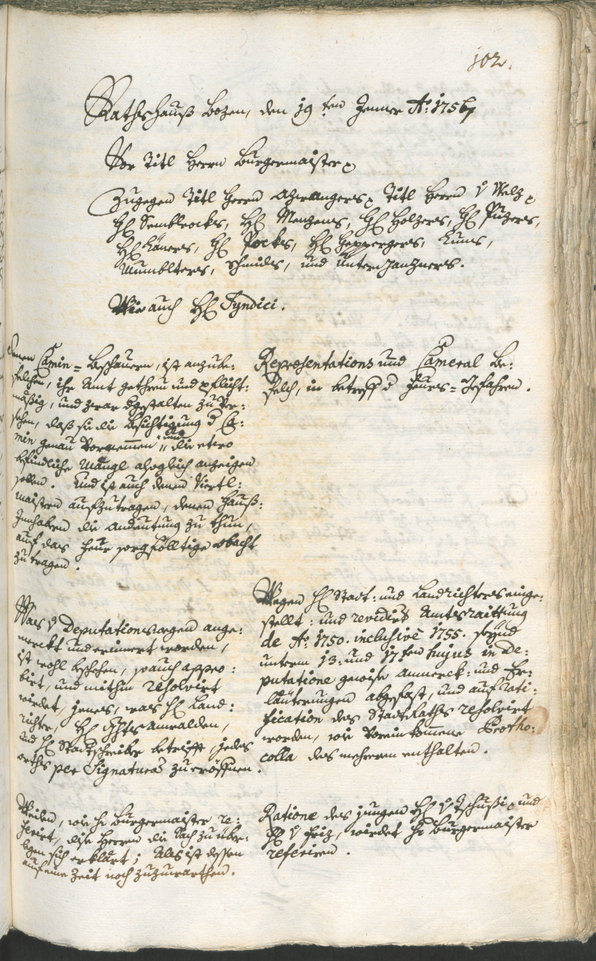 102.
Rathshauß Bozen, den 19ten Jenner Aº: 1756
Vor Titl Herrn Burgermaister
Zugegen Titl Herrn Titl Herrn v Welz
H: Menzens, H: Holzers,
H:
Kuns,
Schmids, und
Wie auch H: Syndici.
Denen Camin-beschauern, ist anzube-
felchen, ihr Ambt getreu und pflicht-
mäßig, und zwar dergestalten zu ver-
sehen, daß sie die Besichtigung d Ca-
min genau vornemmen, und die etwo
befindliche Mängl alsogleich anzeigen
sollen. Und ist auch denen Viertl-
maistern aufzutragen, denen Hauß-
Innhabern die Andeutung zu thun,
auf das Feur sorgfältige obacht
zu tragen.
Representations und Cameral Be-
felch, in betreff d Feurs-Gefahren.
Was d Deputations wegen ange-
merckt und erinnert worden,
ist wohl beschehen, auch appro-
birt, und mithin resolvirt
wirdet, jenes, was H: Land-
richter, H: Anwalden,
und H: Stadtschreiber betrifft, jedes
orths per Signatura zu eröffnen.
Wegen H: Stadt- und Landrichters einge-
stellt- und revidirte Ambtsraittung
de Aº: 1750. inclusive 1755. seynd
unterm 13. und 17ten hujus in De-
putatione gewise anmerck- und Er-
läuterungen abgefast, und auf rati-
fication des Stadt Raths resolvirt
worden, wie Protho-
colla des mehrern enthalten.
Weilen, wie Hr Burgermaister re-
ferirt, dise Herren die Sach zu über-
legen sich erklärt; Als ist dessen
auf eine Zeit noch zuzuwarthen.
Ratione des jungen H: v und
H: v wirdet Hr Burgermaister
referiren.